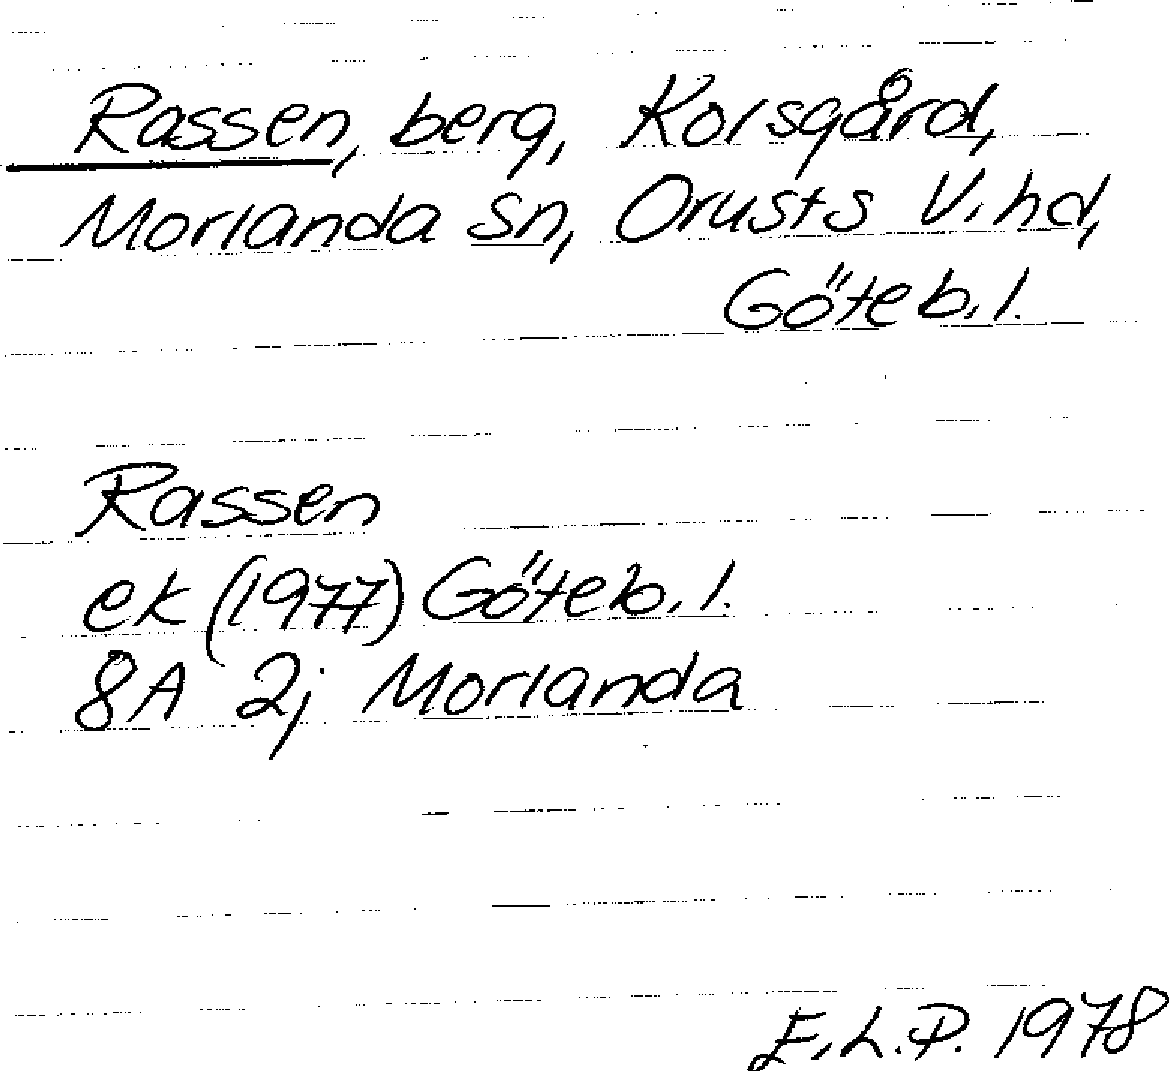 Rassen, berg, Korsgård,
Morlanda sn, Orusts V. hd,
Göteb. l.
Rassen
ek (1977) Göteb. l.
8A 2j Morlanda
E. L. P. 1978